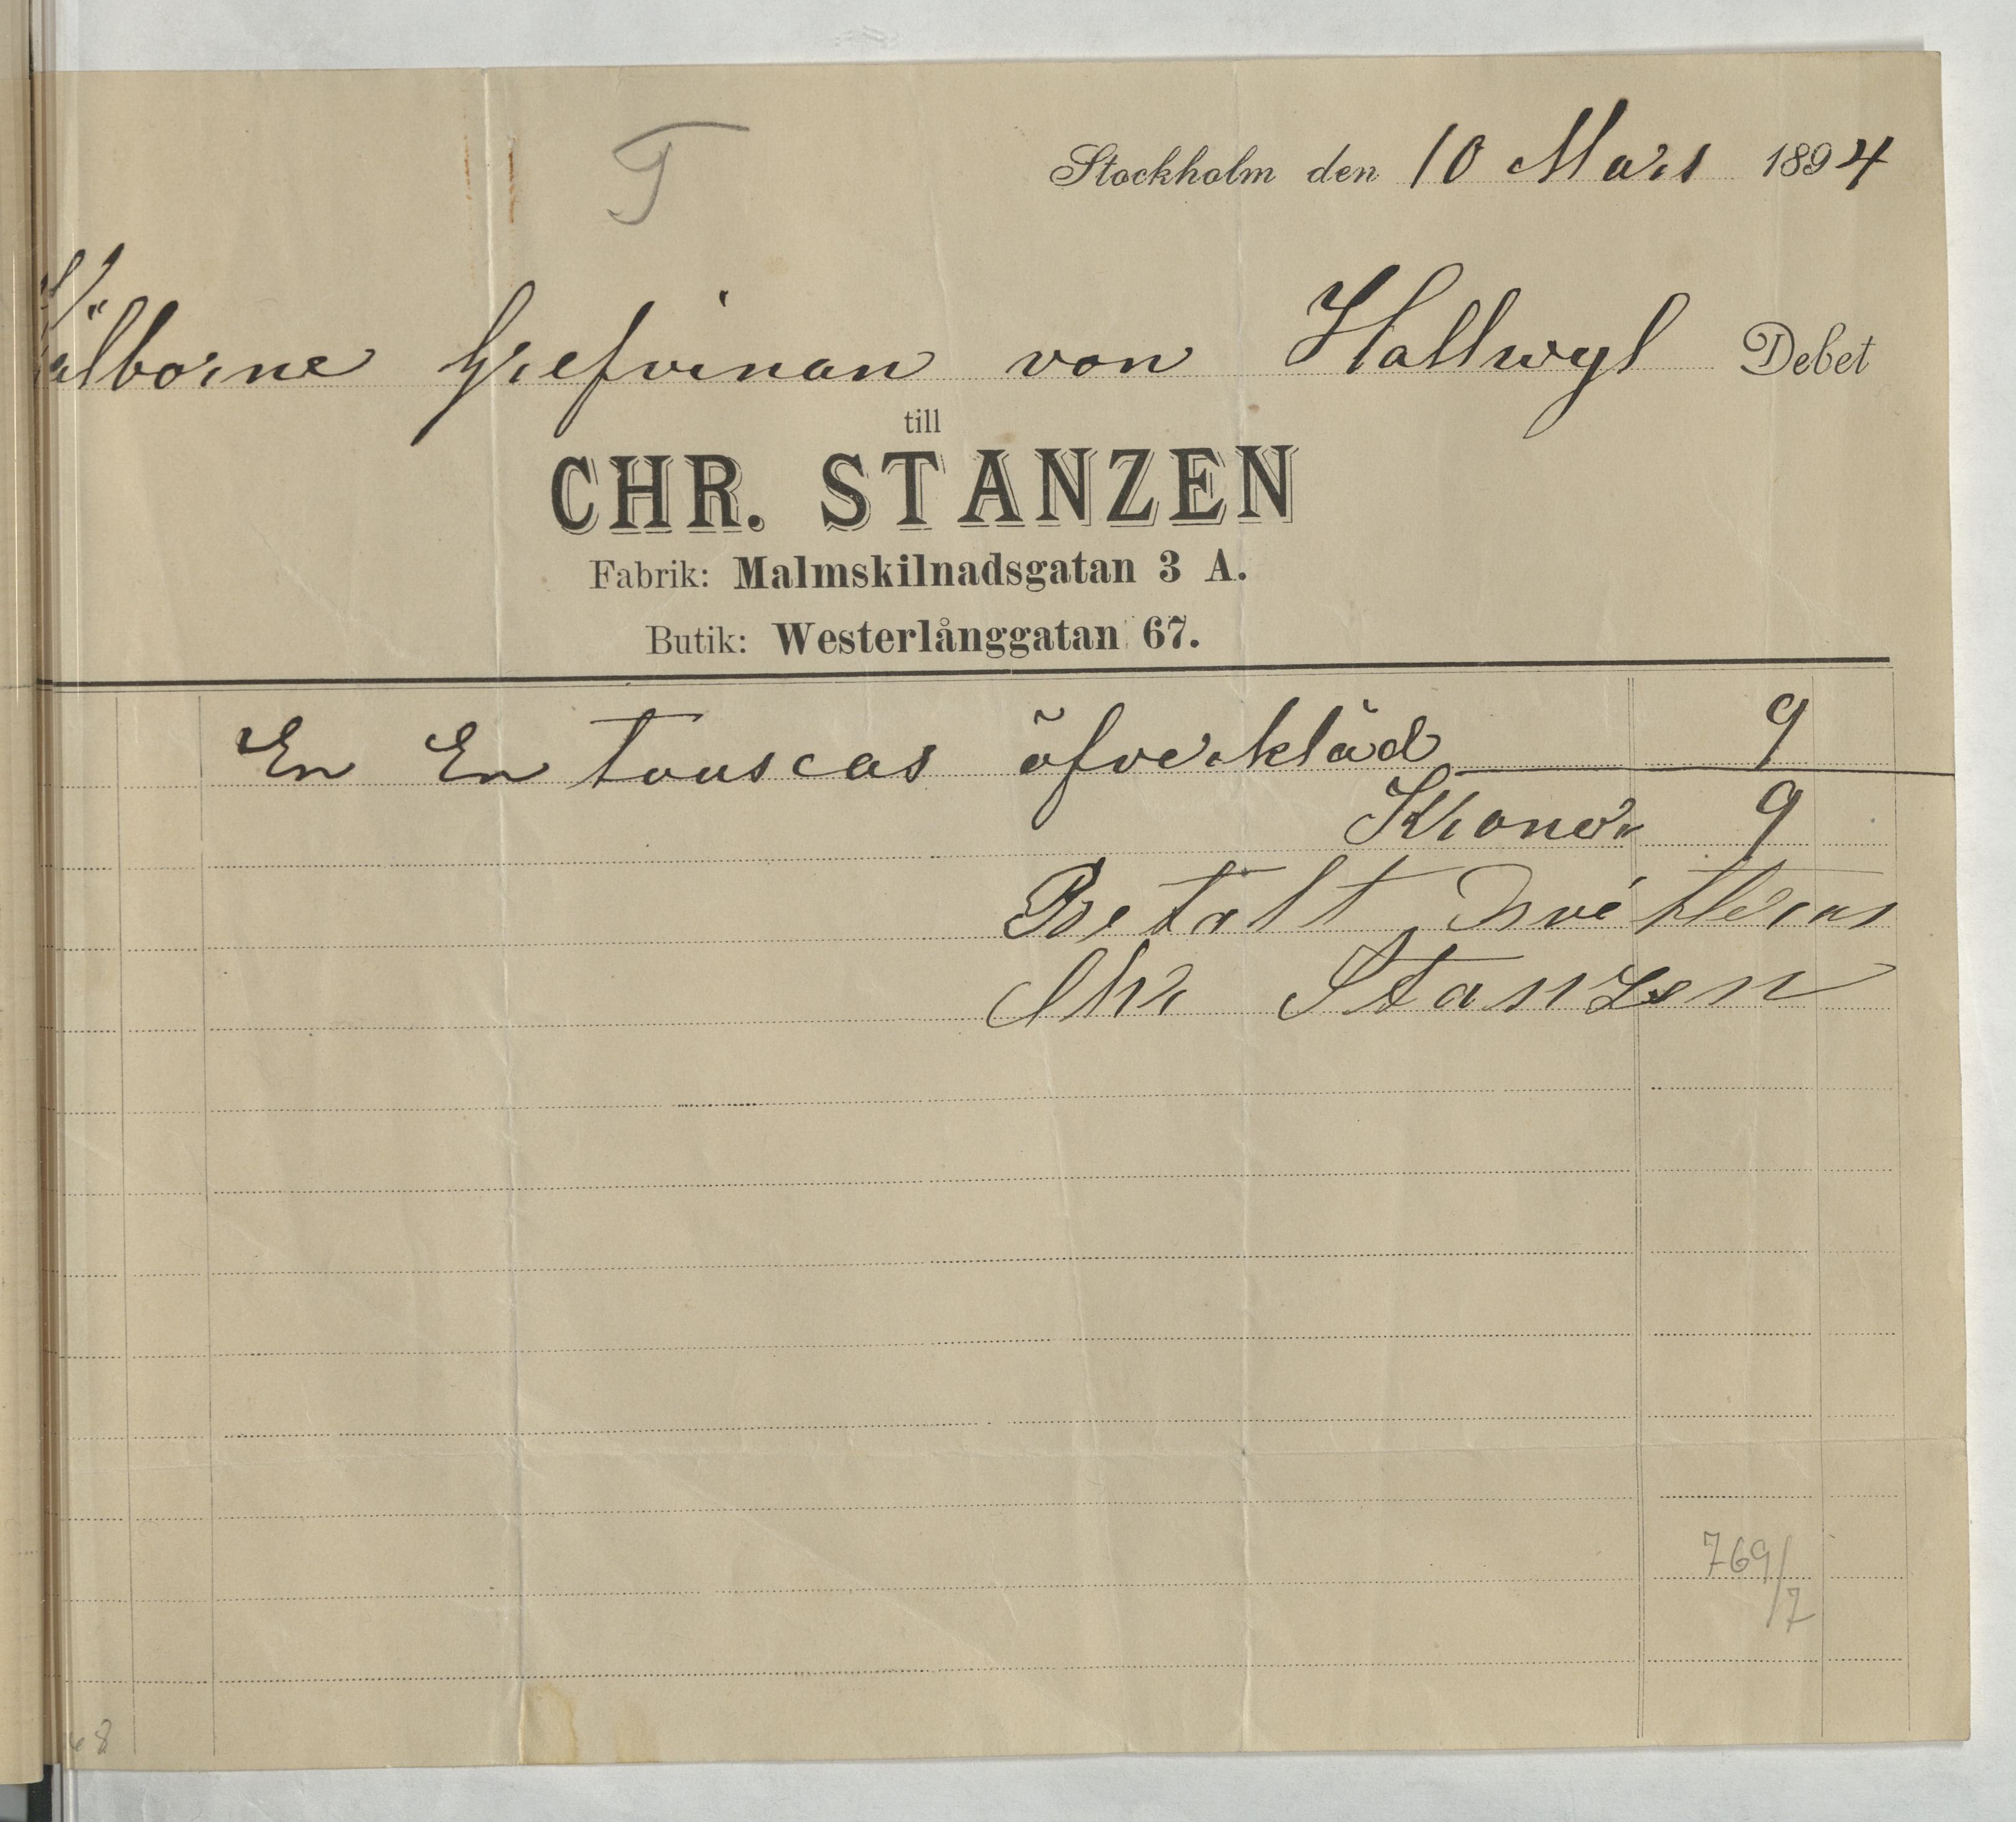 T
Stockholm den 10 Mars 1894
Välborne Grefvinan von Hallwyl Debet
till
CHR. STANZEN
Fabrik: Malmskilnadsgatan 3 A.
Butik: Westerlånggatan 67.
En En touscas öfverkläd 9
Kronor 9
Betalt Qvitteras
Chr Stanzen
769/7